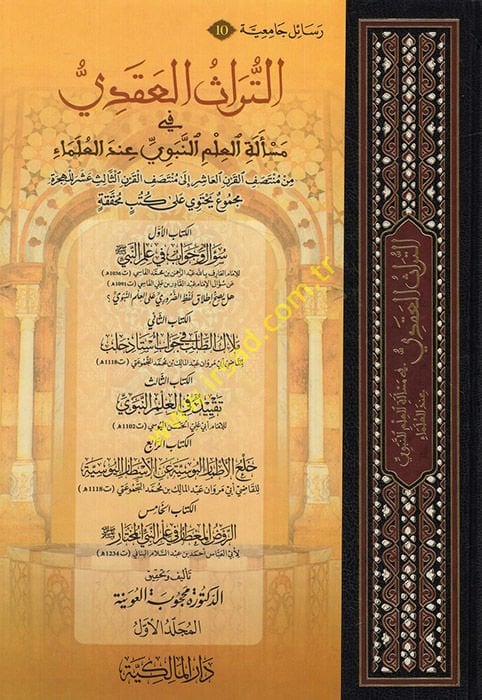 رسائل جامعية 10
التُّراثُ العَقَدِيُّ
فِي
مَسْأَلَةِ العِلْمِ النَّبَوِيِّ عِنْدَ العُلَمَاءِ
مِنْ مُنْتَصَفِ القَرْنِ العَاشِرِ إِلَى مُنْتَصَفِ القَرْنِ الثَّالِثَ عَشَرَ لِلْهِجْرَةِ
مَجْمُوعٌ يَحْتَوِي عَلَى كُتُبٍ مُحَقَّقَةٍ
الكتاب الأول
سُؤَالٌ وَجَوَابٌ فِي عِلْمِ النَّبِيِّ ﷺ
للإمام العارف بالله عبد الرحمن بن محمد الفاسي (ت1036هـ)
عن سؤال الإمام عبد القادر بن علي الفاسي (ت1091هـ)
هل يصح إطلاق لفظ الضروري على العلم النبوي؟
الكتاب الثاني
مَلَاكُ الطَّلَبِ فِي جَوَابِ أُسْتَاذِ حَلَب
للقاضي أبي مروان عبد المالك بن محمد التجموعتي (ت1118هـ)
الكتاب الثالث
تَقْيِيدٌ فِي العِلْمِ النَّبَوِي
للإمام أبي علي الحسن اليوسي (ت1102هـ)
الكتاب الرابع
خَلْعُ الأَطْمَارِ البُوسِيَّةِ عَنِ الأَسْطَارِ اليُوسِيَّةِ
للقاضي أبي مروان عبد المالك بن محمد التجموعتي (ت1118هـ)
الكتاب الخامس
الرَّوْضُ المِعْطَارُ فِي عِلْمِ النَّبِيِّ المُخْتَارِ ﷺ
لأبي العباس أحمد بن عبد السلام البناني (ت1234هـ)
تأليف وتحقيق
الدكتورة محجوبة العوينة
المجلد الأول
دار المالكية
التراث العقدي
في مسألة العلم النبوي
عند العلماء